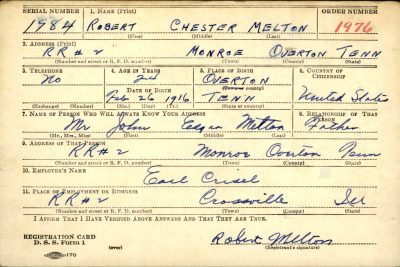 SERIAL NUMBER 1. NAME (Print) ORDER NUMBER
1984 ROBERT CHESTER MELTON 1976
(First) (Middle) (Last)
2. ADDRESS (Print)
RR#2 MONROE OVERTON TENN
(Number and street or R. F. D. number) (Town) (County) (State)
3. TELEPHONE 4. AGE IN YEARS 5. PLACE OF BIRTH 6. COUNTRY OF CITIZENSHIP
No 24 OVERTON
DATE OF BIRTH (Town or county)
Feb 26 1916 TENN United States
(Exchange) (Number) (Mo.) (Day) (Yr.) (State or country)
7. NAME OF PERSON WHO WILL ALWAYS KNOW YOUR ADDRESS 8. RELATIONSHIP OF THAT PERSON
Mr John Edgar Melton Father
(Mr., Mrs., Miss) (First) (Middle) (Last)
9. ADDRESS OF THAT PERSON
RR#2 Monroe Overton Tenn
(Number and street or R. F. D. number) (Town) (County) (State)
10. EMPLOYER'S NAME
Earl
11. PLACE OF EMPLOYMENT OR BUSINESS
RR#2 Crossville Ill
(Number and street or R. F. D. number) (Town) (County) (State)
I AFFIRM THAT I HAVE VERIFIED ABOVE ANSWERS AND THAT THEY ARE TRUE.
REGISTRATION CARD
D. S. S. Form 1 (over) Robert Melton
(Registrant's signature)